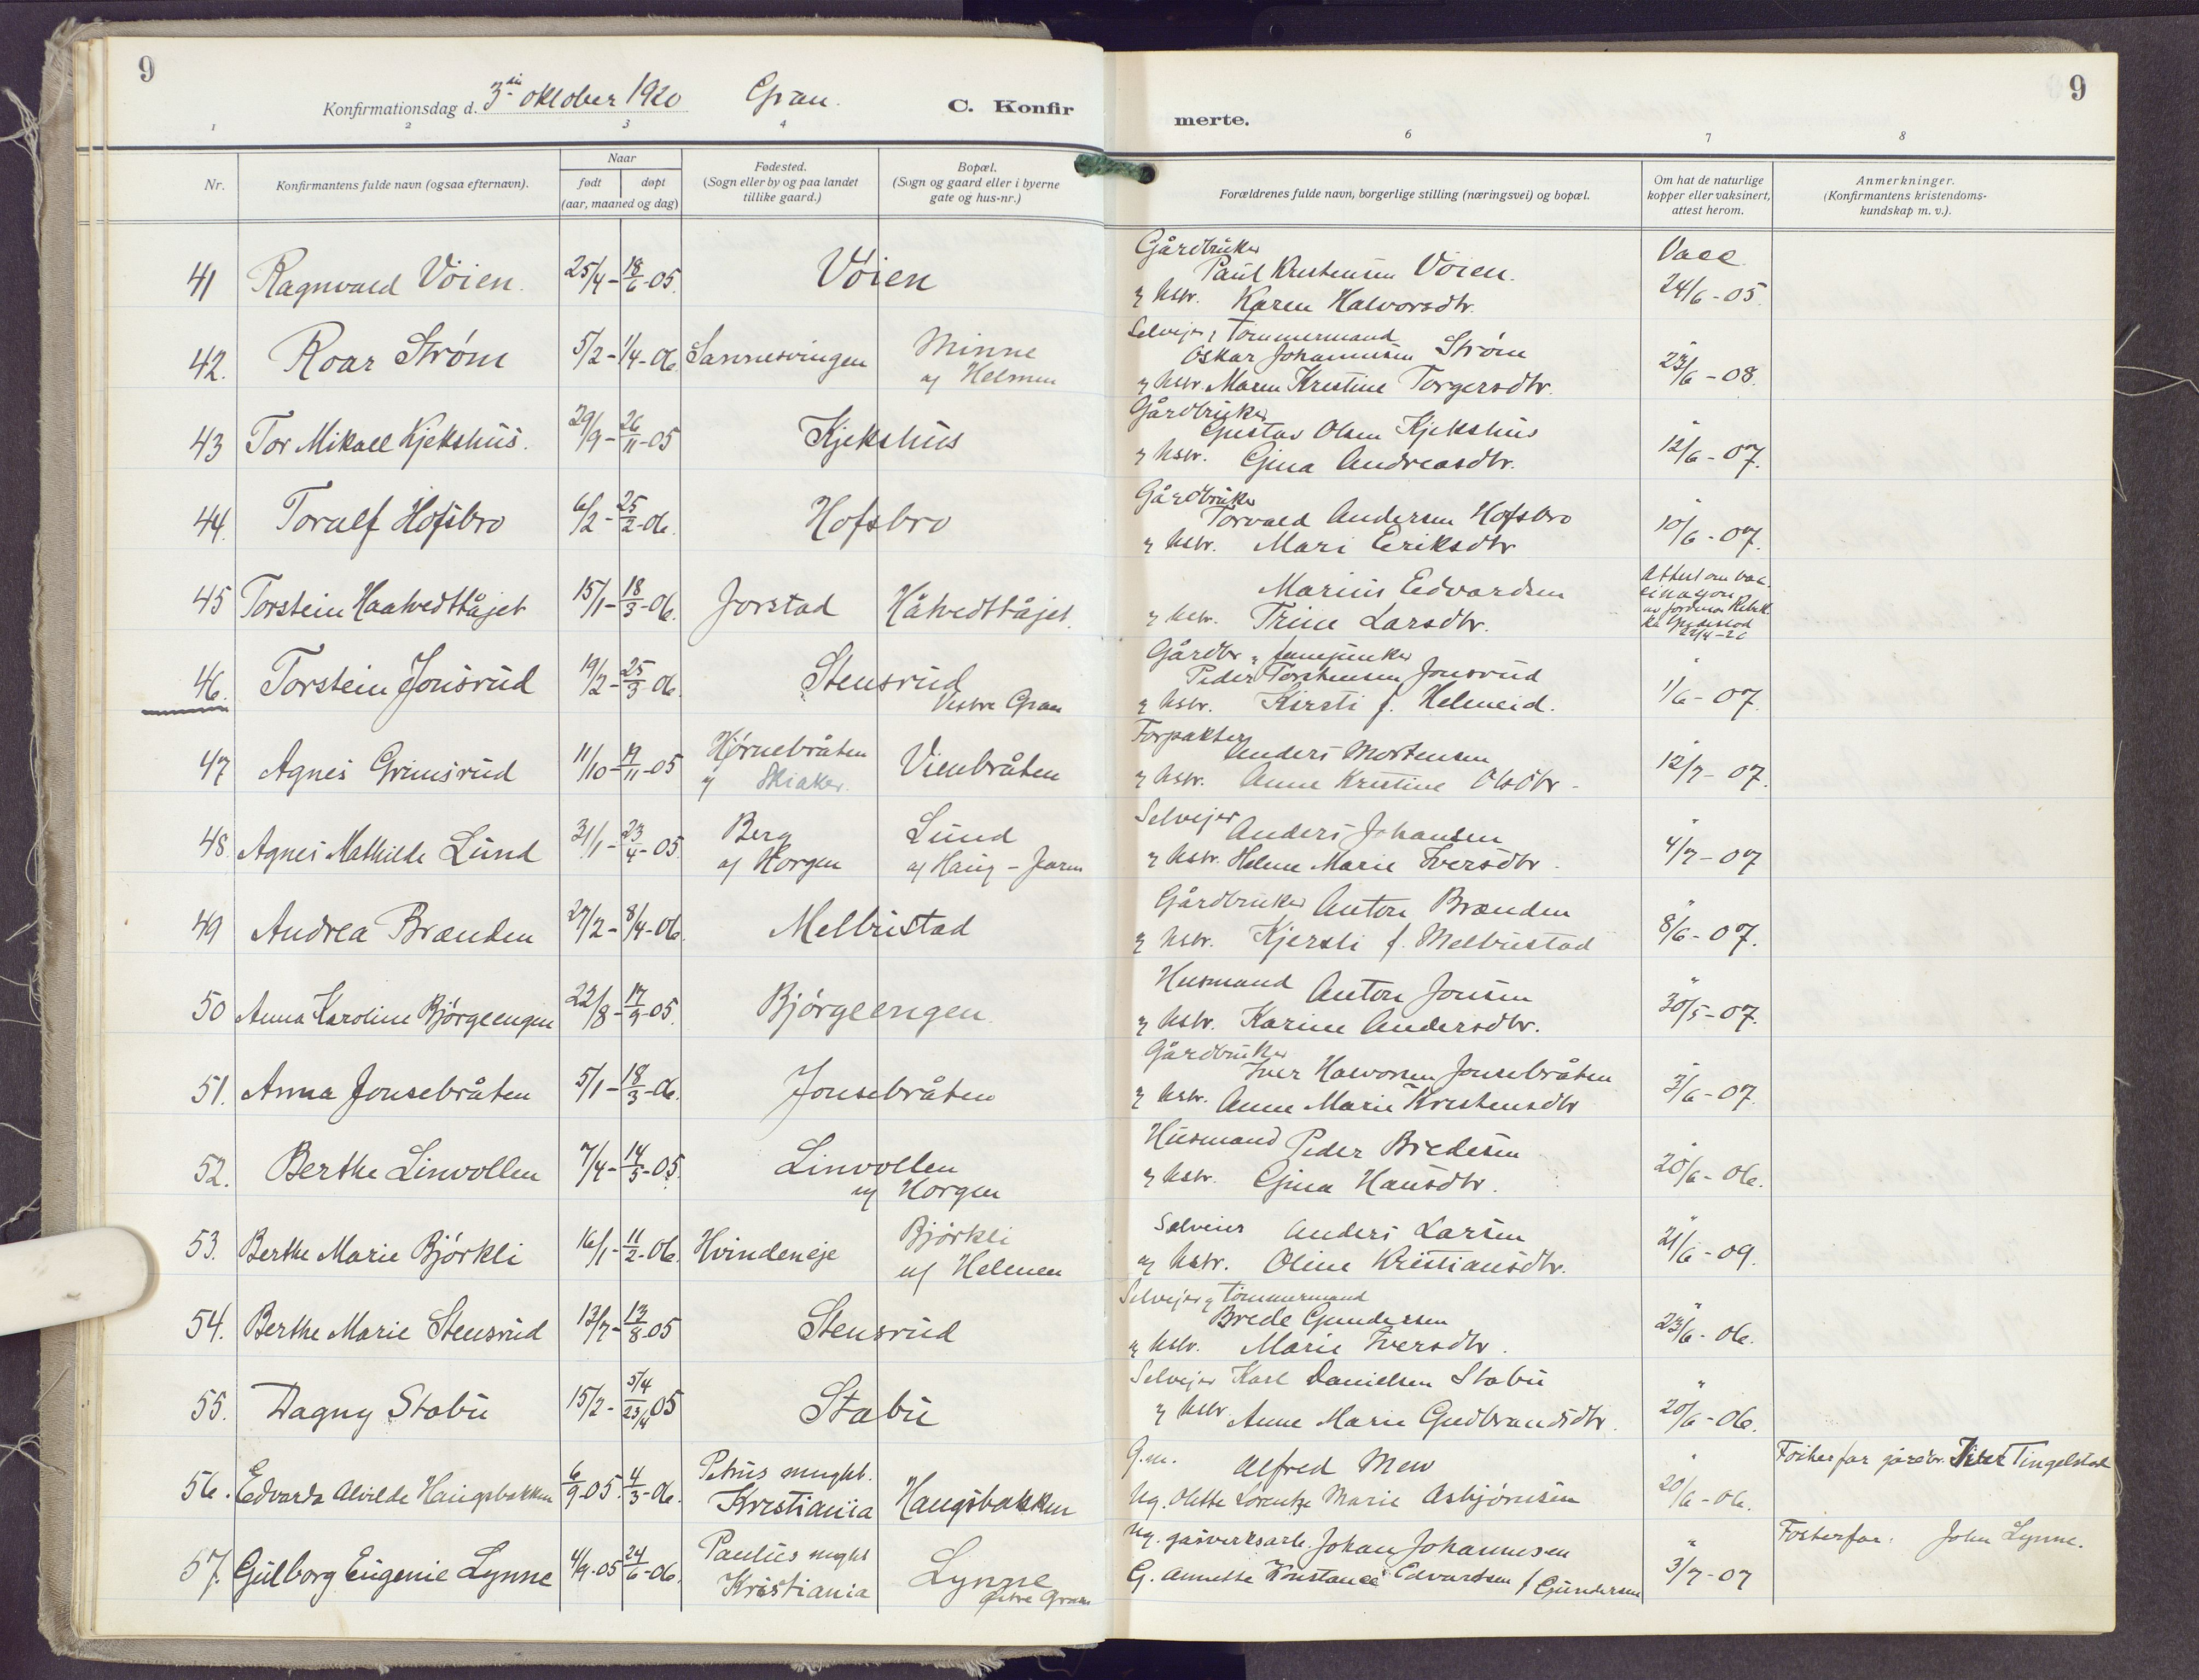 9
Konfirmationsdag d. 3die oktober 1920 Gran.
C. Konfirmerte.
9
1 2 3 4 6 7 8
Nr.
Konfirmantens fulde navn (ogsaa efternavn).
Naar
født døpt
(aar, maaned og dag)
Fødested.
(Sogn eller by og paa landet
tillike gaard.)
Bopæl.
(Sogn og gaard eller i byerne
gate og hus-nr.)
Forældrenes fulde navn, borgerlige stilling (næringsvei) og bopæl.
Om hat de naturlige
kopper eller vaksinert,
attest herom.
Anmerkninger.
(Konfirmantens kristendoms-
kundskap m. v.).
41 Ragnvald Vöien. 25/4 - 18/6 - 05. Vöien
Gårdbruker
Paul Kristensen Vöien.
og hstr. Karen Halvorsdtr.
Vacc
24/6 - 05.
42. Roar Strøm 5/2 - 1/4 - 06. Sannesvingen Minne
Selvejer, Tømmermand
Oskar Johannesen Strøm
og hstr. Maren Kristine Torgersdtr.
" 23/6 - 08.
43 Tor Mikael Kjekshus. 29/9 - 26/11 - 05 Kjekshus
Gårdbruker
Gustav Olsen Kjekshus
og hstr. Gina Andreasdtr.
" 12/6 - 07.
44. Toralf Hofsbro 6/2 - 25/2 - 06. Hofsbro
Gårdbruker
Torvald Andersen Hofsbro
og hstr. Mari Eriksdtr
" 10/6 - 07.
45 Torstein Haatvedthåjet 15/1 - 18/3 - 06. Jorstad Håtvedthåjet
Marius Edvardsen
og hstr. Trine Larsdtr.
Attest om vac-
av jordmor
22/4 - 20
46. Torstein Jonsrud 19/2 - 25/3 - 06. Stensrud
Vestre Gran
Gårdbr og fanejunker
Peder Torstensen Jonsrud
og hstr. Kirsti f. Helmeid.
" 1/6 - 07.
47 Agnes Grimsrud 11/10 - 19/11 - 05 Hjørnebråten Vienbråten
u/ Skiaker.
Forpakter
Anders Mortensen
og hstr. Anne Kristine Olsdtr -
" 12/7 - 07.
48. Agnes Mathilde Lund 31/1 - 23/4 - 05. Berg Lund
u/ Horgen u/ Haug - Jaren
Selvejer
Anders Johansen
og hstr. Helene Marie Iversdtr.
" 4/7 - 07
49 Andrea Brænden 27/2 - 8/4 - 06. Melbustad
Gårdbruker Anton Brænden
og hstr. Kjersti f. Melbustad
" 8/6 - 07.
50 Anna Karoline Bjørgeengen 22/8 - 17/9 - 05. Bjørgeengen.
Husmand Anton Jonsen
og hstr. Karine Andersdtr.
" 30/5 - 07.
51. Anna Jonsebråten 5/1 - 18/3 - 06. Jonsebråten
Gårdbruker
Iver Halvorsen Jonsebråten
og hstr. Anne Marie Kristensdtr
" 3/6 - 07.
52. Berthe Linvollen 7/4 - 14/5 - 05. Linvollen
u/ Horgen
Husmand Peder Bredesen
og hstr. Gina Hansdtr.
" 20/6 - 06.
53. Berthe Marie Bjørkli 16/1 - 11/2 - 06. Hvindeneje Bjørkli
u/ Helmen
Selveier Anders Larsen
og hstr. Oline Kristiansdtr.
" 21/6 - 09.
54. Berthe Marie Stensrud 13/7 - 13/8 - 05 Stensrud
Selvejer og Tömmermand
Brede Gundersen
og hstr. Marie Iversdtr.
" 23/6 - 06.
55. Dagny Stabu 15/2 - 5/4 23/4 05 Stabu
Selvejer Karl Danielsen Stabu
og hstr. Anne Marie Gudbrandsdtr.
" 20/6 - 06.
56. Edvarda Alvilde Haugsbakken 6/9 - 05. 4/3 - 06. Petrus mught.
Kristiania Haugsbakken
G.m. Alfred Mew
Ug. Olette Lorentze Marie Asbjørnsen
" 20/6 - 06.
Fosterfar gårdbr. Iver Tingelstad
57. Gulborg Eugenie Lynne 4/9 - 05 24/6 - 06. Paulus mght
Kristiania Lynne
Østre Gran
Ug. gasverksarb. Johan Johannesen
G. Annette Konstance Edvardsen f. Gundersen
" 3/7 - 07
Fosterfar: John Lynne.